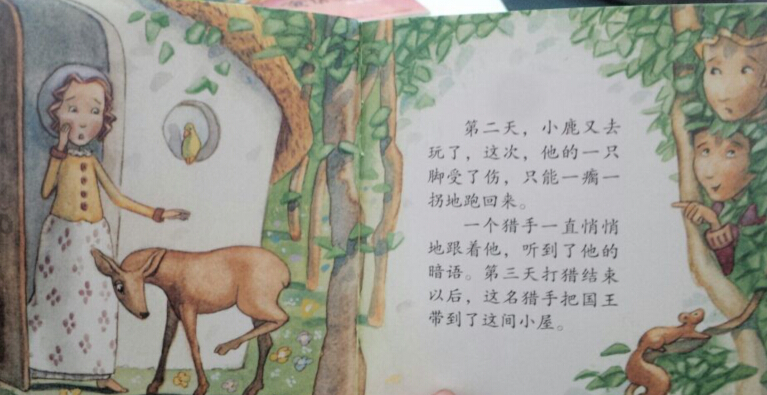 第二天，小鹿又去
玩了，这次，他的一只
脚受了伤，只能一瘸一
拐地跑回来。
一个猎手一直悄悄
地跟着他，听到了他的
暗语。第三天打猎结束
以后，这名猎手把国王
带到了这间小屋。